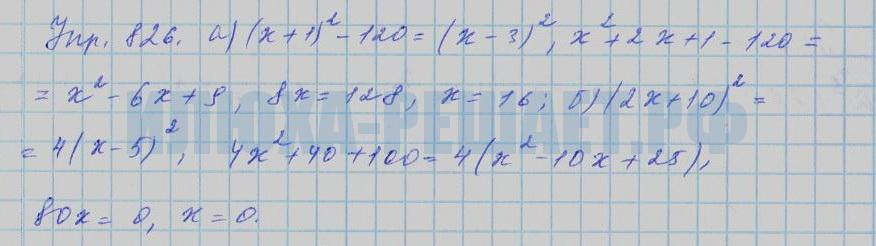 Упр. 826. а) (x+1)² - 120 = (x-3)², x²+2x+1-120 =
= x²-6x+9, 8x=128, x=16; б) (2x+10)² =
= 4(x-5)², 4x²+40+100=4(x²-10x+25),
80x = 0, x=0.
ИЛЮХА-РЕШАЕТ.РФ